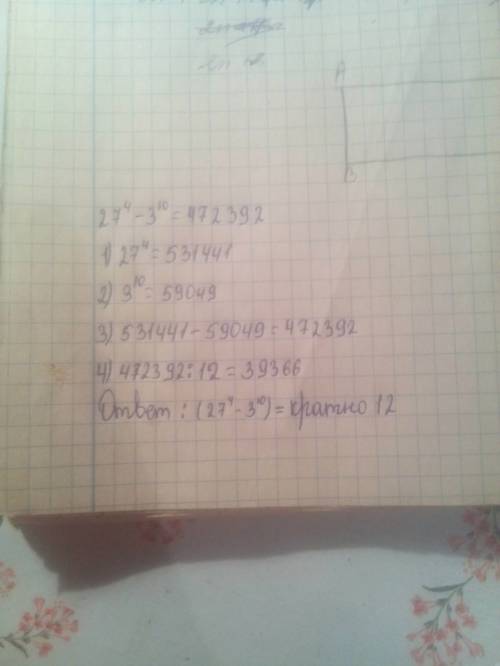 A
B
27⁴-3¹⁰=472392
1) 27⁴=531441
2) 3¹⁰=59049
3) 531441-59049=472392
4) 472392:12=39366
Ответ: (27⁴-3¹⁰)=кратно 12